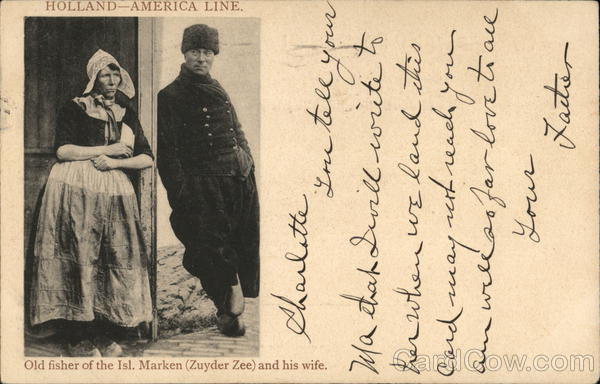 HOLLAND—AMERICA LINE.
Charlotte
You tell your
Ma that I will write to
her when we land this
card may not reach you
am well so far love to all
Your
Father
Old fisher of the Isl. Marken (Zuyder Zee) and his wife.
CardCow.com